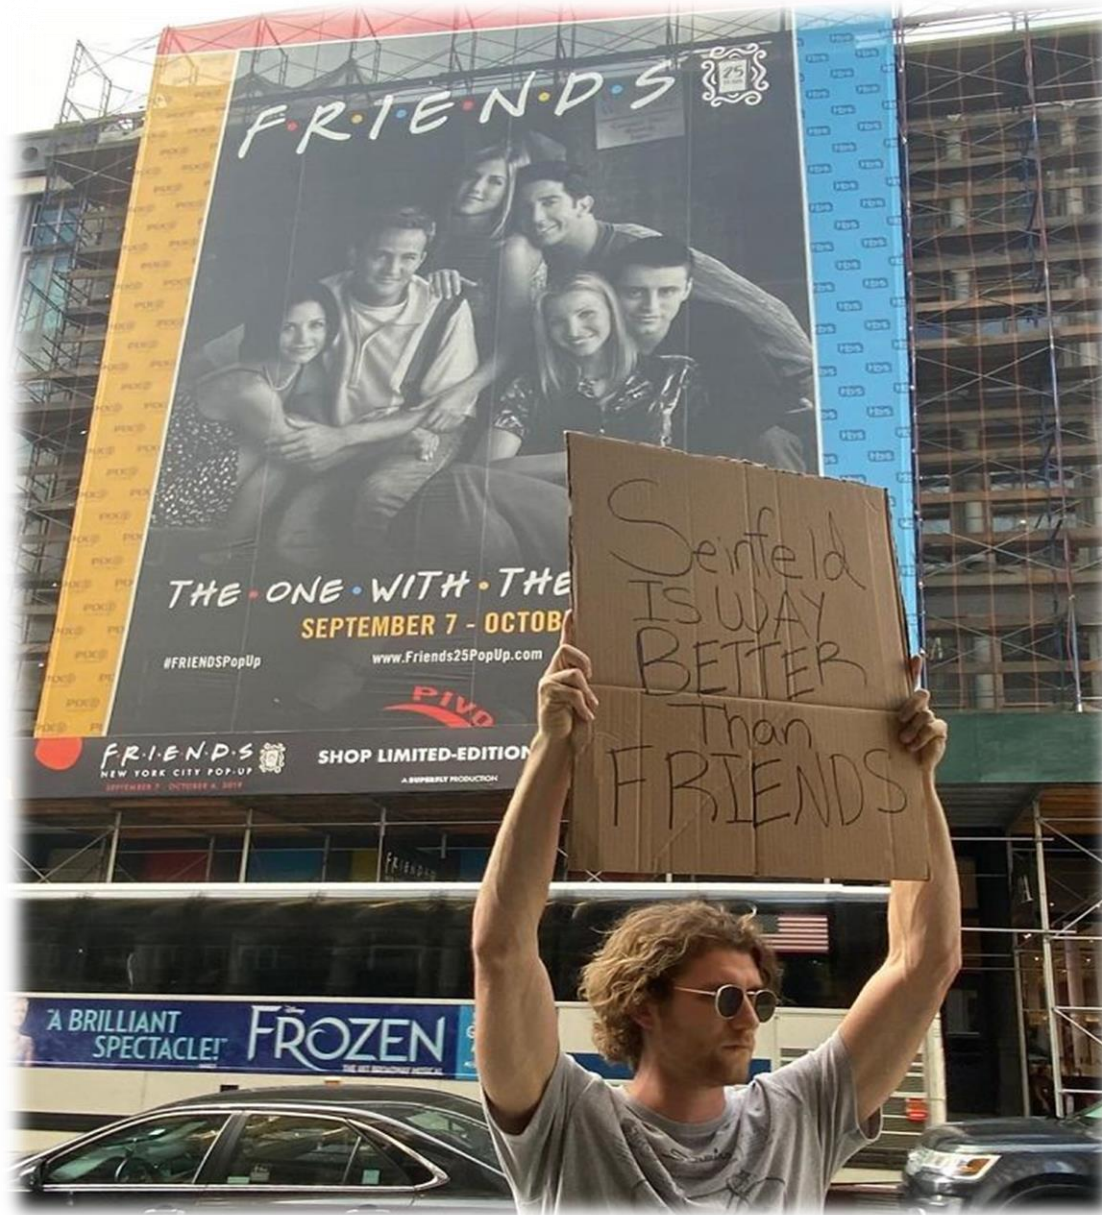 F·R·I·E·N·D·S
25
THE·ONE·WITH·THE
SEPTEMBER 7 - OCTOB
#FRIENDSPopUp
www.Friends25PopUp.com
PIVO
F·R·I·E·N·D·S
NEW YORK CITY POP-UP
SEPTEMBER 7 - OCTOBER 6, 2019
SHOP LIMITED-EDITION
A SUPERFLY PRODUCTION
Seinfeld
IS WAY
BETTER
Than
FRIENDS
FRIENDS
"A BRILLIANT
SPECTACLE!"
Disney
FROZEN
THE HIT BROADWAY MUSICAL